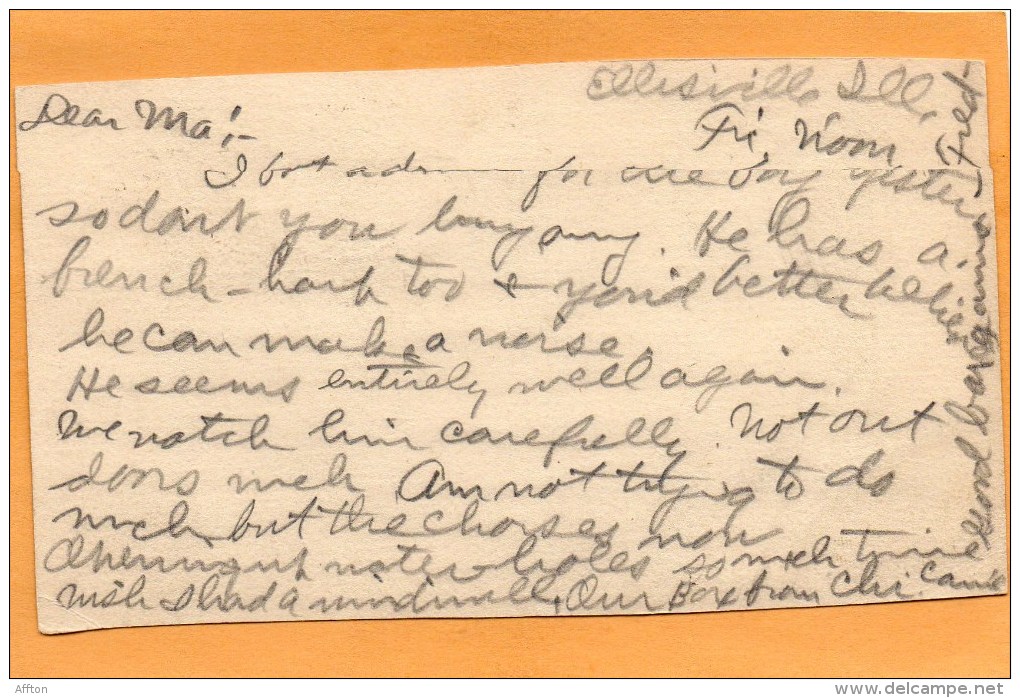 Ellisville Ill,
Fri, Noon
Dear Ma:-
I bot a drum for the boy yester
so dont you buy any. He has a
french-harp too & you'd better believe
he can make a noise.
He seems entirely well again.
We watch him carefully. Not out
doors much Am not trying to do
much but the chores now
Opening up water-holes so much time
wish I had a windmill, Our Box from Chi. came
good bargains
Fred-
Affton
www.delcampe.net